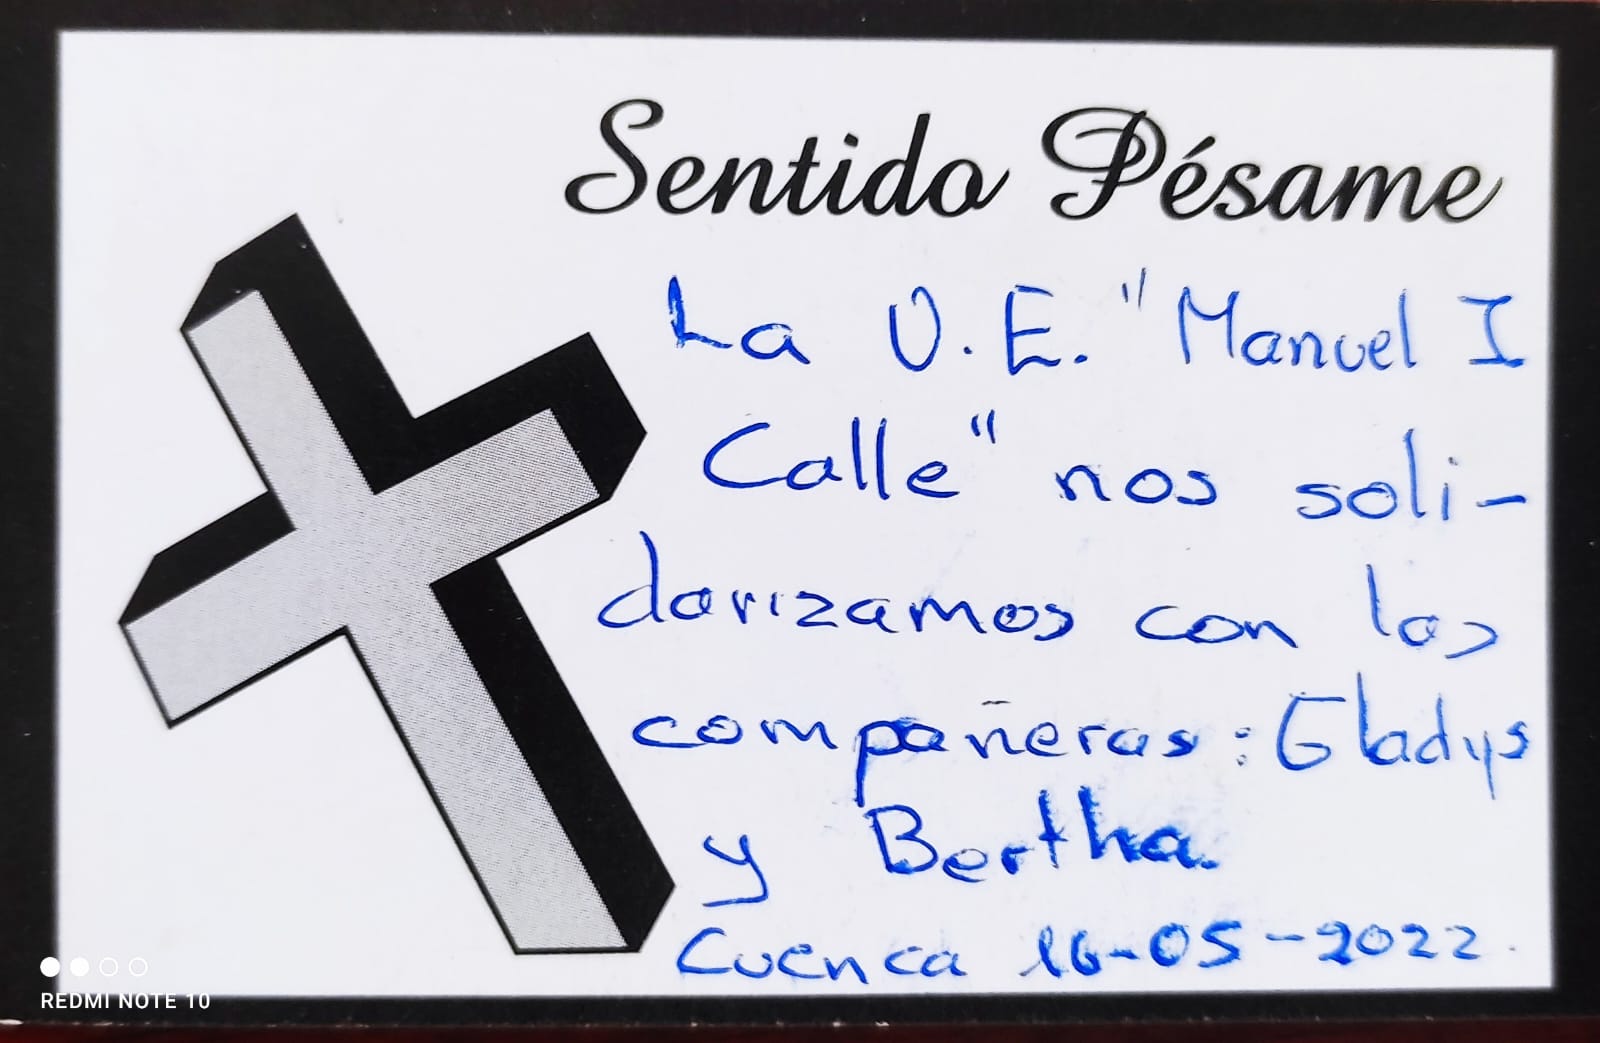 Sentido Pésame
La U.E. "Manuel I
Calle" nos soli-
darizamos con las
compañeras: Gladys
y Bertha.
Cuenca 16-05-2022.
REDMI NOTE 10